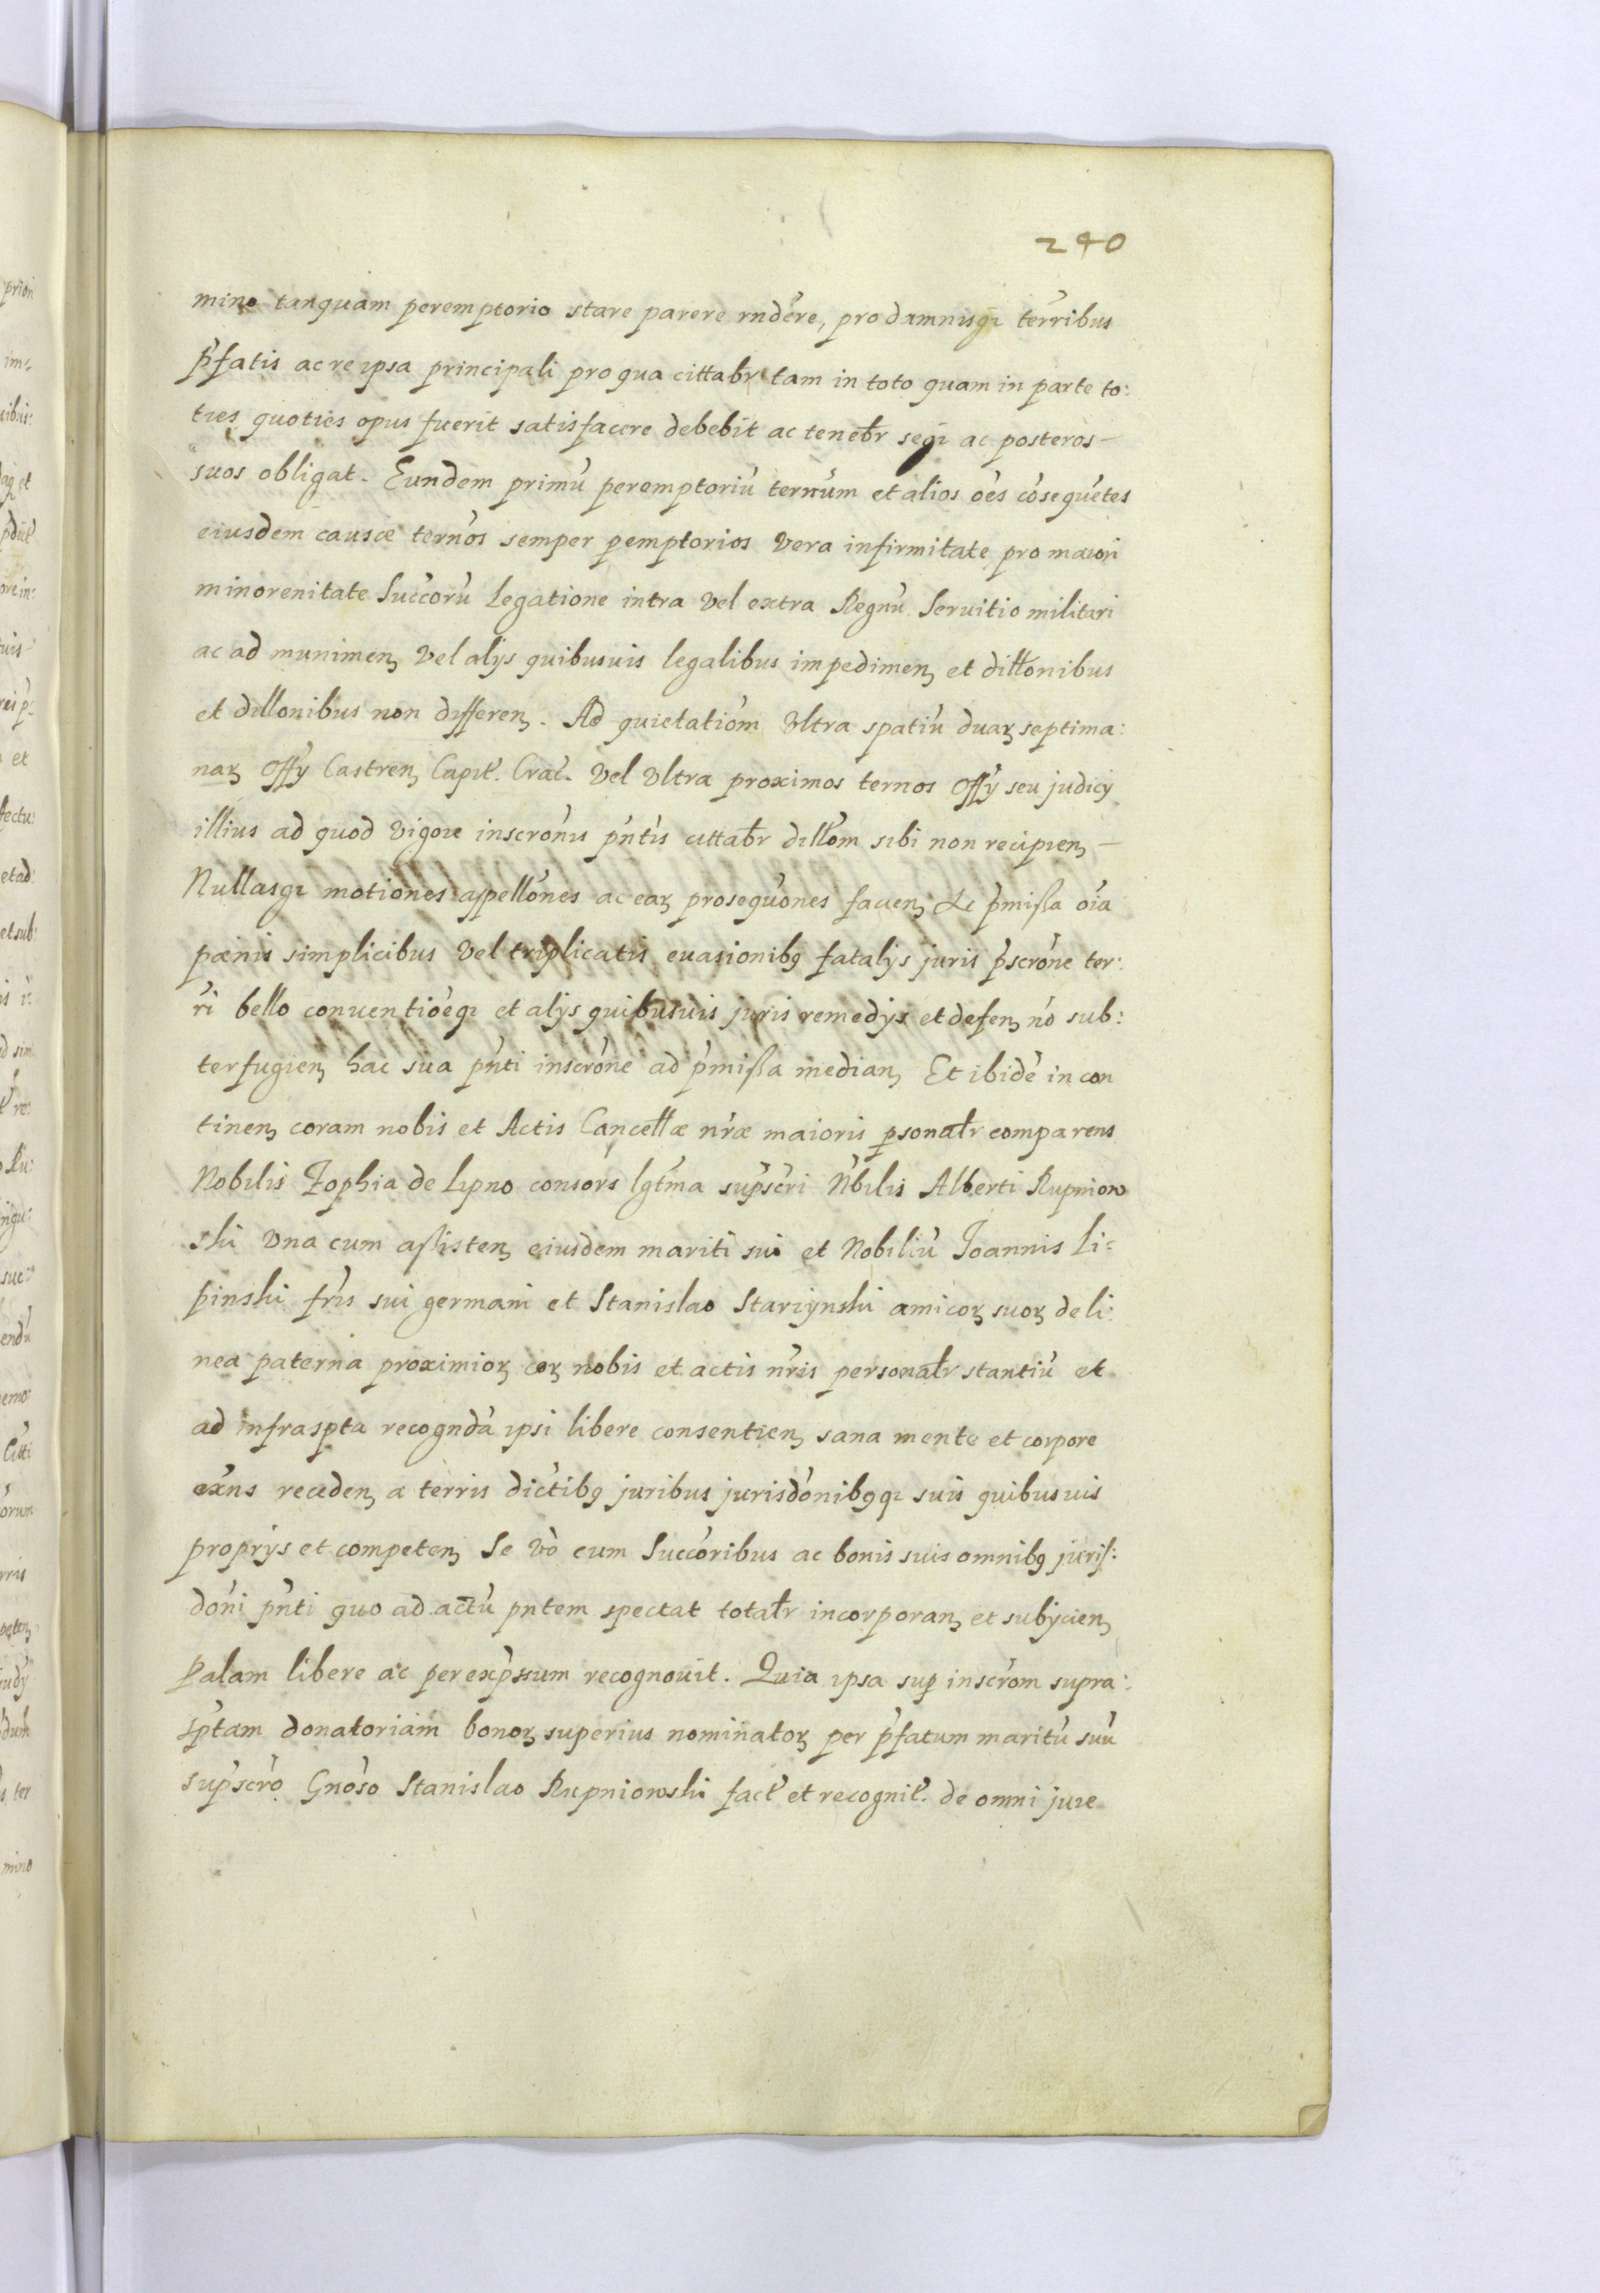 240
mino tanquam peremptorio stare parere rndére, pro damnisqȝ terribus
p̓fatis ac re ipsa principali pro qua cittabr tam in toto quam in parte to:
ties quoties opus fuerit satisfacere debebit ac tenebr seqȝ ac posteros —
suos obligat. Eundem primú peremptoriú ternúm et alios oés cósequétes
eiusdem causæ ternós semper pemptorios vera infirmitate pro maiori
minorenitate Succorú Legatione intra vel extra Regnú Seruitio militari
ac ad munimenȝ vel alijs quibusuis legalibus impedimenȝ et dillonibus
et dillonibus non differenȝ. Ad quietatióm vltra spatiú duarȝ septima:
narȝ Offy Castrenȝ Capit. Crac. vel vltra proximos ternos Offy seu judicij
illius ad quod vigore inscronis pńtis cittabr dillom sibi non recipienȝ —
Nullasqȝ motiones appellónes ac earȝ prosequónes facienȝ Et p̓missa oía
pœnis simplicibus vel triplicatis euasionibȝ fatalijs juris p̓scróne ter:
ri bello conuentióeqȝ et alijs quibusuis juris remedijs et defenȝ nó sub:
terfugienȝ hac sua pńti inscróne ad p̓missa medianȝ Et ibidé in con
tinenȝ coram nobis et Actis Cancellæ nræ maioris psonalr comparens
Nobilis Zophia de Lipno consors lgtma sup̓scri Nbilis Alberti Rupniow
ski vna cum assistenȝ eiusdem mariti sui et Nobiliú Joannis Li:
pinski frís sui germani et Stanislao Stariynski amicorȝ suorȝ de li:
nea paterna proximiorȝ corȝ nobis et actis nrís personalr stantiú et
ad infraspta recognda ipsi libere consentienȝ sana mente et corpore
exńs recedenȝ a terris dictibȝ juribus jurisdónibȝqȝ suis quibusuis
proprijs et competenȝ Se vò cum Succoribus ac bonis suis omnibȝ juris:
dóni pńti quo ad actú pntem spectat totalr incorporanȝ et subijcienȝ
Palam libere ac per exp̓ssum recognouit. Quia ipsa sup inscróm supra:
sptam donatoriam bonorȝ superius nominatorȝ per p̓fatum maritú suú
sup̓scro Gnóso Stanislao Rupniowski fact et recognit. de omni jure